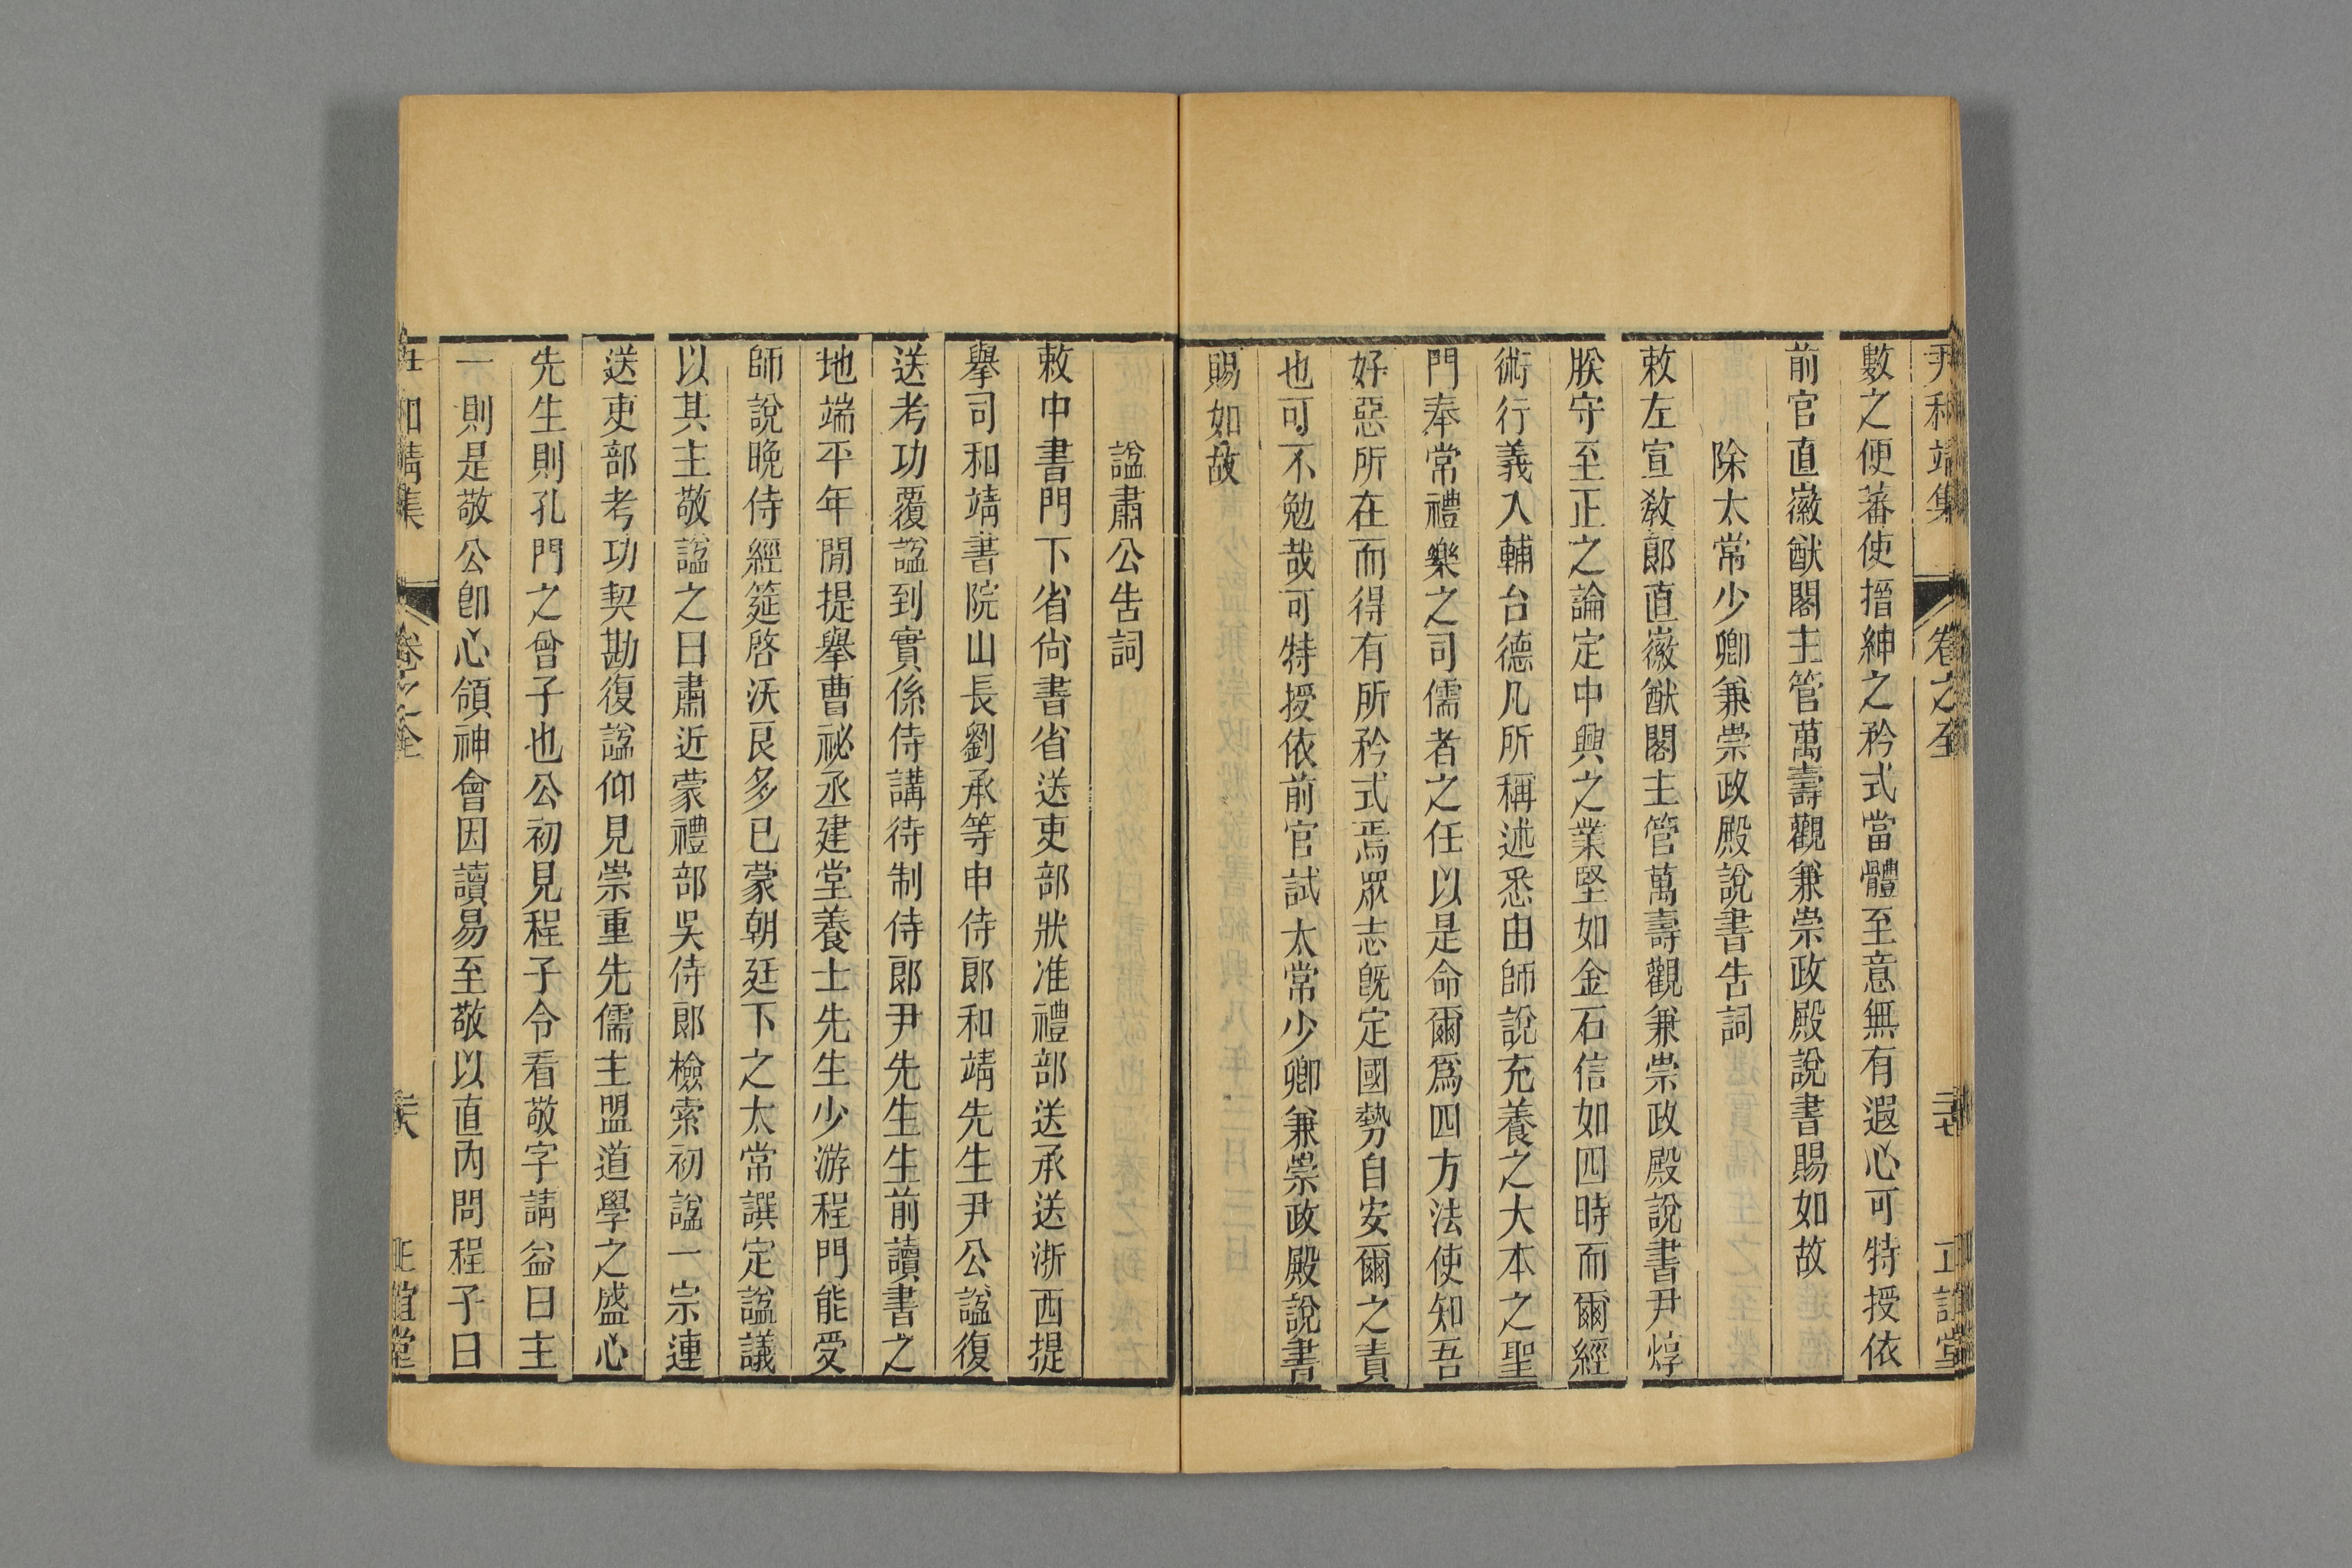 尹和靖集 卷之全 二十七 正誼堂
數之便蕃使搢紳之矜式當體至意無有遐心可特授依
前官直徽猷閣主管萬壽觀兼崇政殿說書賜如故
除太常少卿兼崇政殿說書告詞
敕左宣敎郞直徽猷閣主管萬壽觀兼崇政殿說書尹焞
朕守至正之論定中興之業堅如金石信如四時而爾經
術行義入輔台德凡所稱述悉由師說充養之大本之聖
門奉常禮樂之司儒者之任以是命爾爲四方法使知吾
好惡所在而得有所矜式焉眾志旣定國勢自安爾之責
也可不勉哉可特授依前官試太常少卿兼崇政殿說書
賜如故
諡肅公告詞
敕中書門下省尙書省送吏部狀准禮部送承送浙西提
舉司和靖書院山長劉承等申侍郞和靖先生尹公諡復
送考功覆諡到實係侍講待制侍郞尹先生生前讀書之
地端平年閒提舉曹祕丞建堂養士先生少游程門能受
師說晚侍經筵啓沃良多已蒙朝廷下之太常譔定諡議
以其主敬諡之曰肅近蒙禮部吳侍郞檢索初諡一宗連
送吏部考功契勘復諡仰見崇重先儒主盟道學之盛心
先生則孔門之曾子也公初見程子令看敬字請益曰主
一則是敬公卽心領神會因讀易至敬以直內問程子曰
尹和靖集 卷之全 二十八 正誼堂